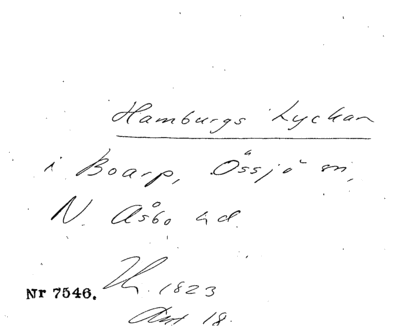 Hamburgs Lyckan
i Boarp, Össjö sn,
N. Åsbo hd.
Nr 7546. Th. 1823
Ant 18.